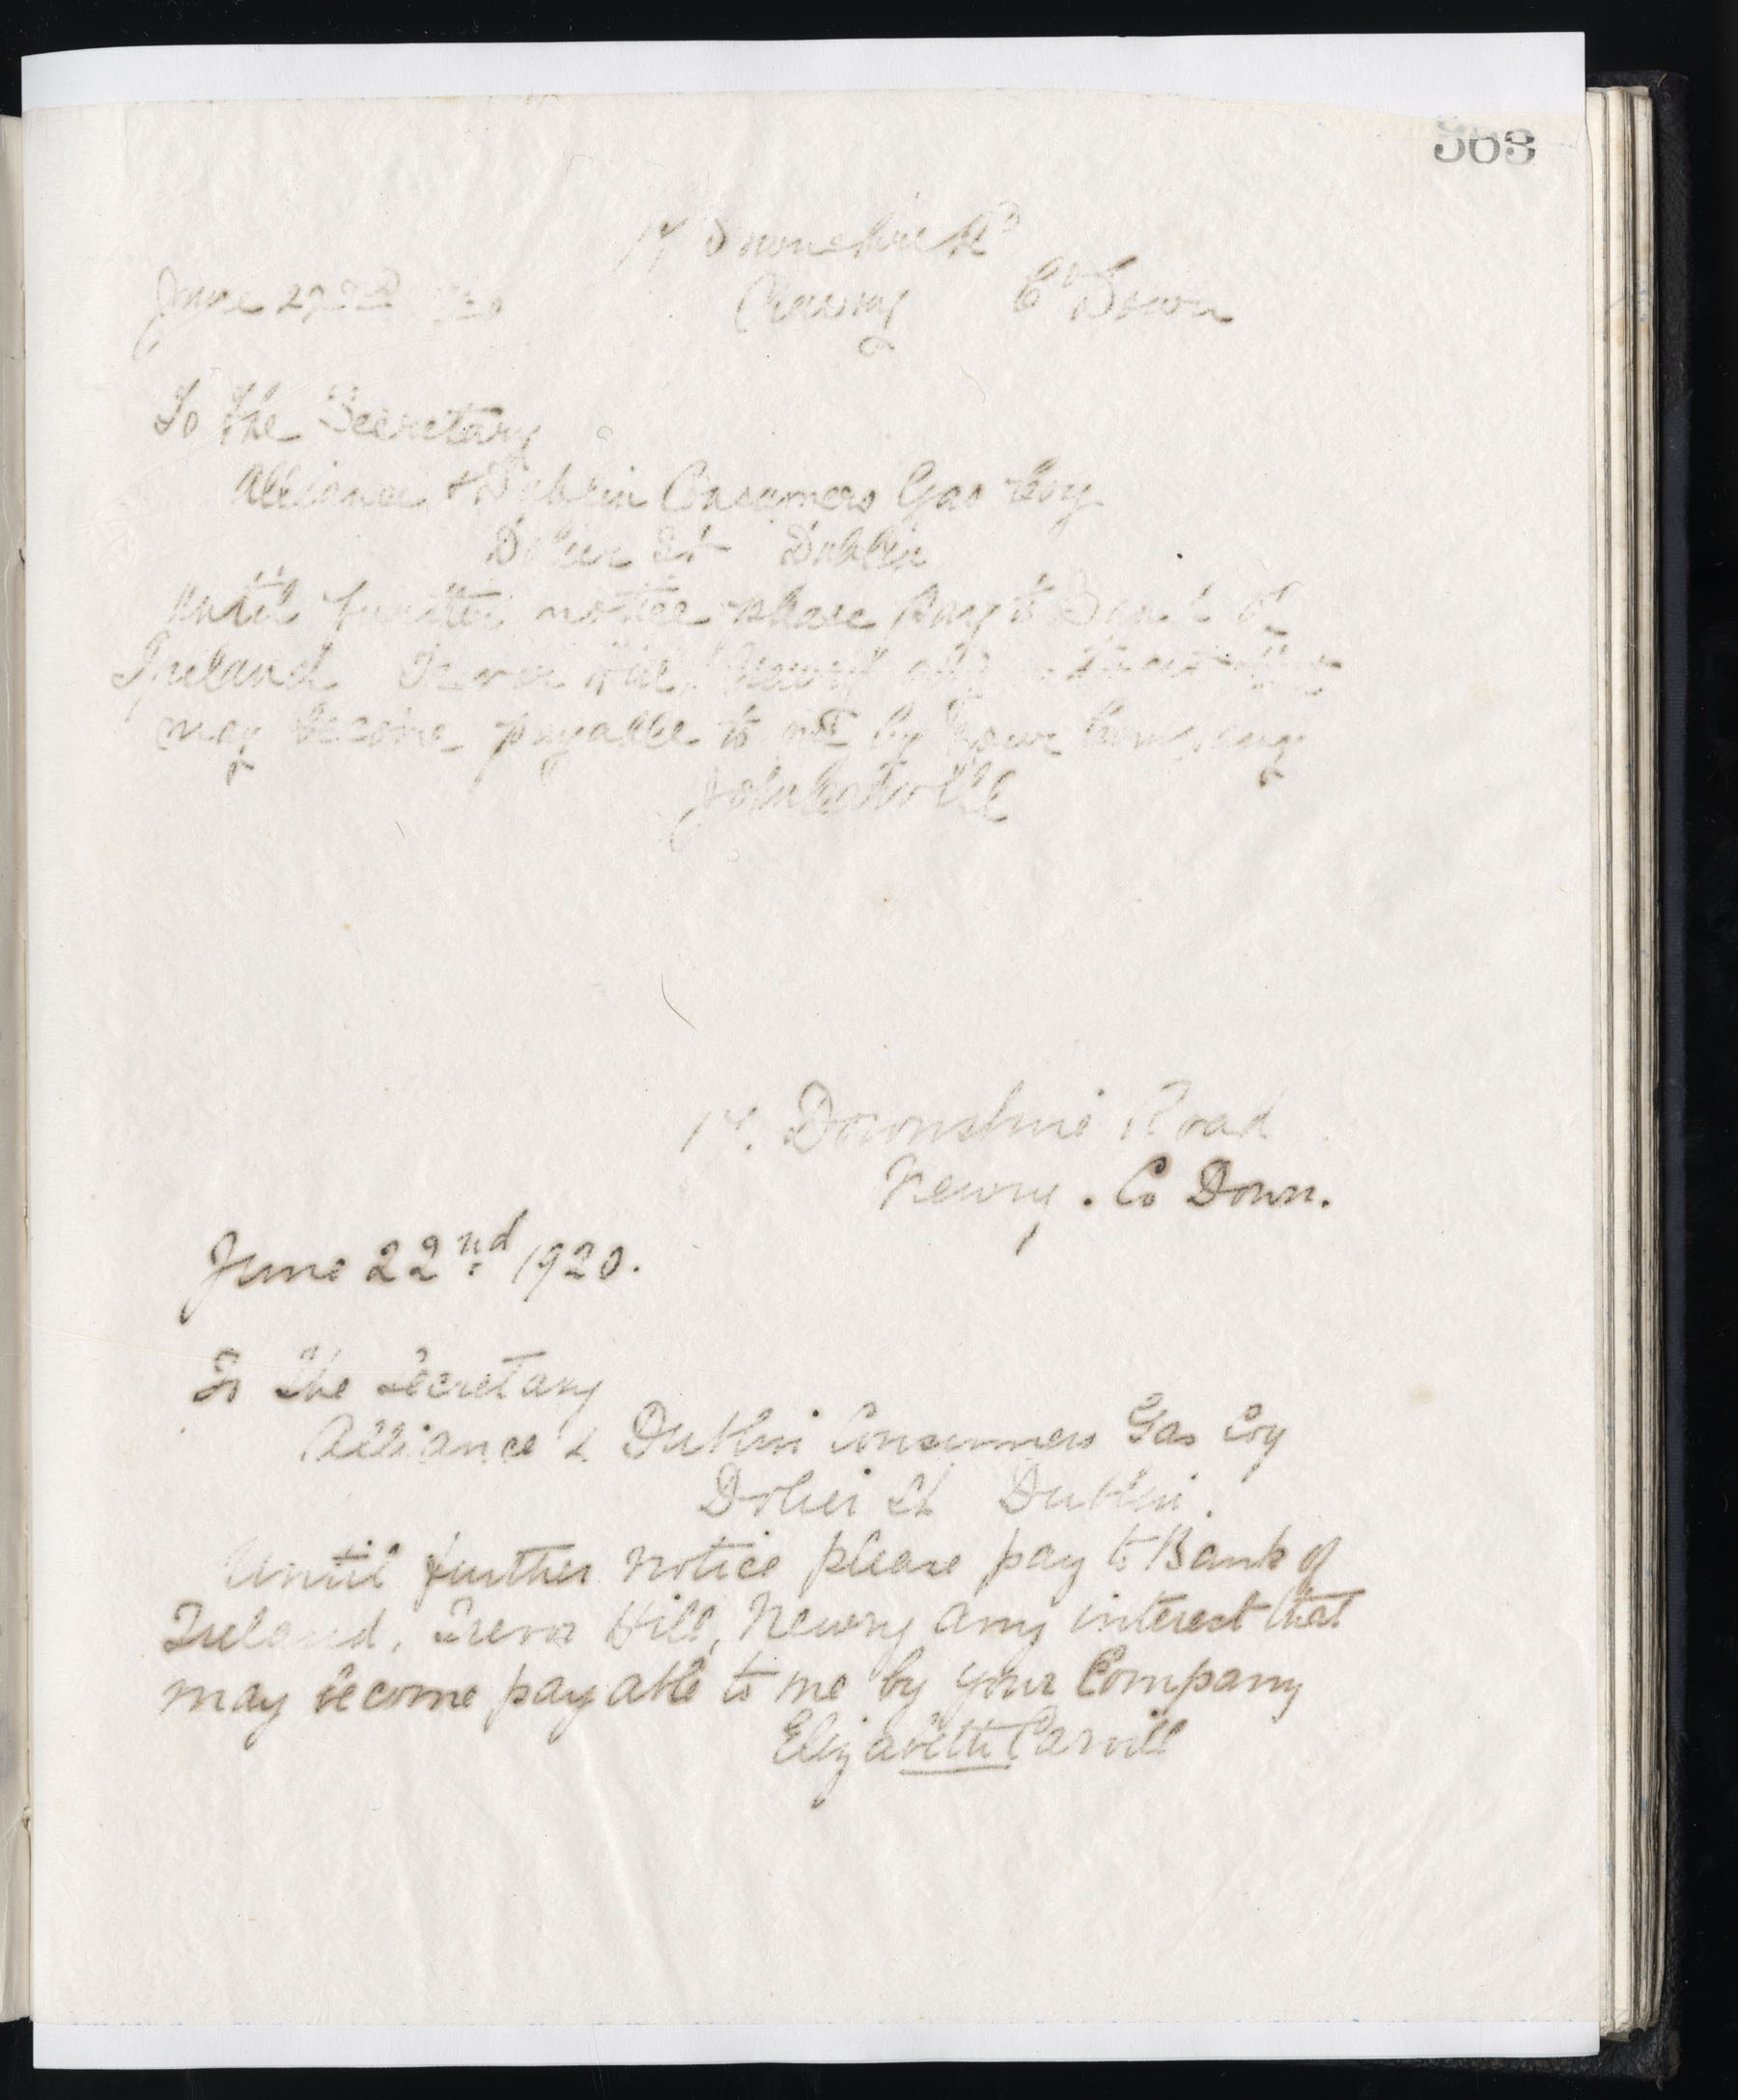 563
17 Downshire Rd
June 22nd 1920 Newry Co Down
To the Secretary
Alliance & Dublin Consumers Gas Coy
Dolier St Dublin
Until further notice please pay to Bank of
Ireland Trevor Hill, Newry any
may become payable to me by your Company
John Carvill
17. Downshire Road
Newry. Co Down.
June 22nd 1920.
To The Secretary
Alliance & Dublin Consumers Gas Coy
Dolier St Dublin.
Until further notice please pay to Bank of
Ireland, Trevor Hill, Newry any interest that
may become payable to me by your Company
Elizabeth Carvill